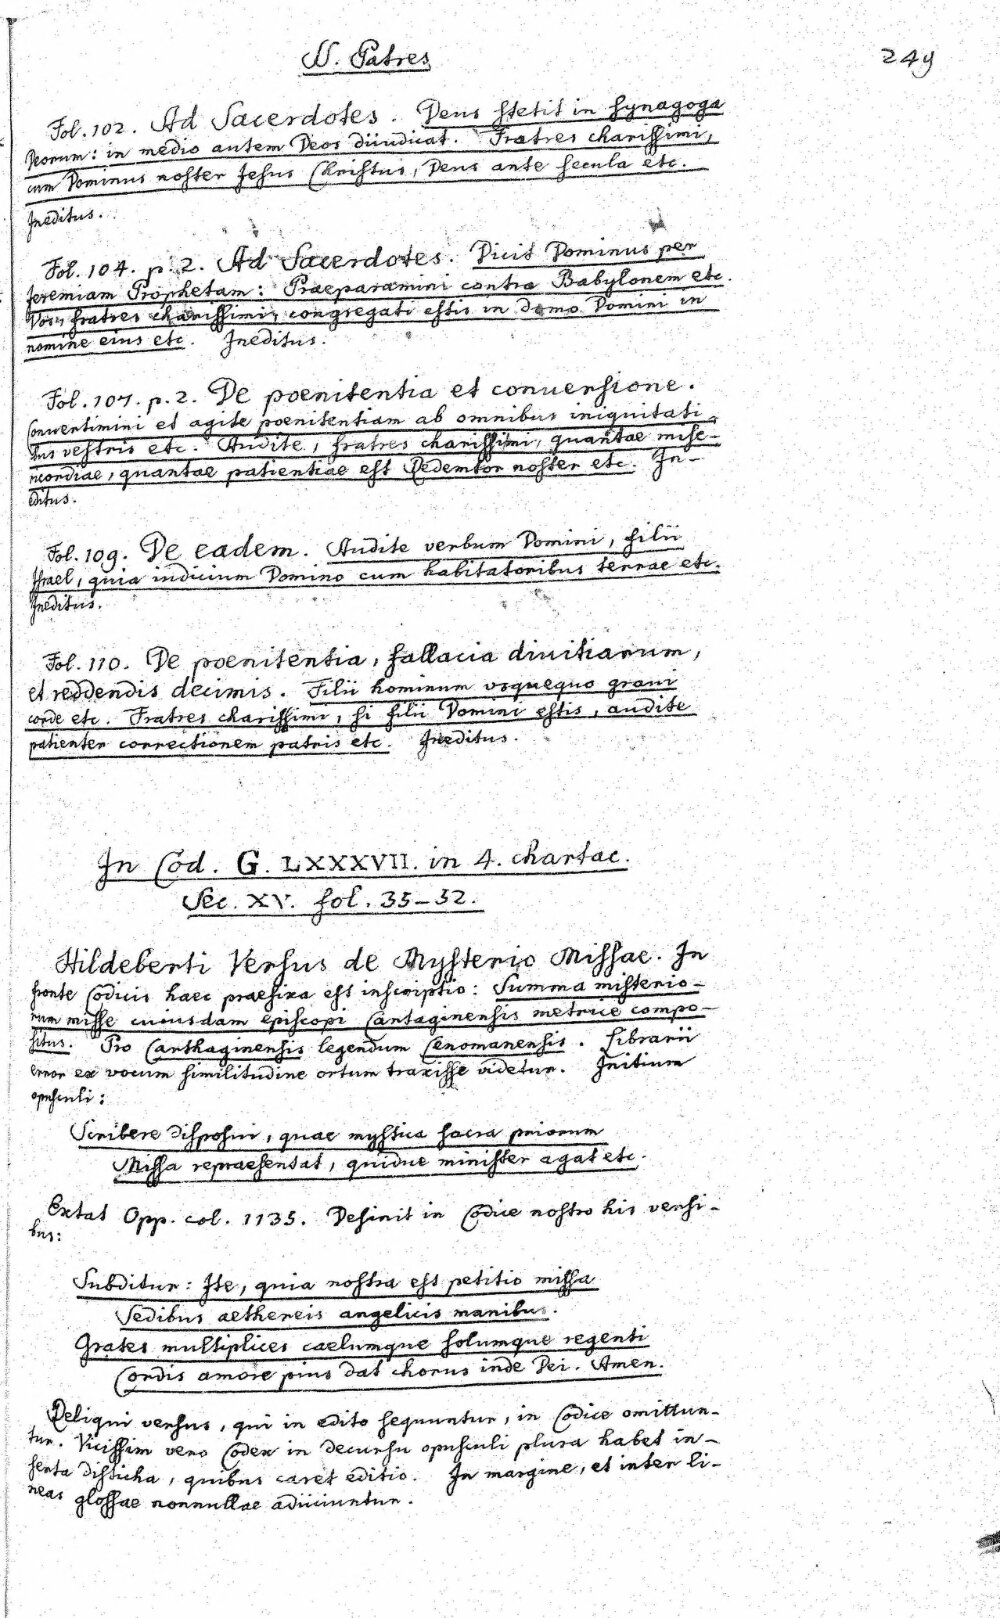 N. Patres
249
Fol. 102. Ad Sacerdotes. Deus stetit in synagoga
Deorum: in medio autem Deos diiudicat. Fratres charissimi,
cum Dominus noster Jesus Christus, Deus ante secula etc.
Ineditus.
Fol. 104. p. 2. Ad Sacerdotes. Dicit Dominus per
Jeremiam Prophetam: Praeparamini contra Babylonem etc.
Vos, fratres charissimi, congregati estis in domo Domini in
nomine eius etc. Ineditus.
Fol. 107. p. 2. De poenitentia et conuersione.
Conuertimini et agite poenitentiam ab omnibus iniquitati-
bus vestris etc. Audite, fratres charissimi, quantae mise-
ricordiae, quantae patientiae est Redemtor noster etc. In-
editus.
Fol. 109. De eadem. Audite verbum Domini, filii
Israel, quia iudicium Domino cum habitatoribus terrae etc.
Ineditus.
Fol. 110. De poenitentia, fallacia diuitiarum,
et reddendis decimis. Filii hominum vsquequo graui
corde etc. Fratres charissimi, si filii Domini estis, audite
patienter correctionem patris etc. Ineditus.
In Cod. G. LXXXVII. in 4. chartac.
Sec. XV. fol. 35-52.
Hildeberti Versus de Mysterio Missae. In
fronte Codicis haec praefixa est inscriptio: Summa misterio-
rum misse cuiusdam episcopi Cartaginensis metrice compo-
situs. Pro Carthaginensis legendum Cenomanensis. Librarii
error ex vocum similitudine ortum traxisse videtur. Initium
opusculi:
Scribere disposui, quae mystica sacra priorum
Missa repraesentat, quidue minister agat etc.
Extat Opp. col. 1135. Desinit in Codice nostro his versi-
bus:
Subditur: Ite, quia nostra est petitio missa
Sedibus aethereis angelicis manibus.
Grates multiplices caelumque solumque regenti
Cordis amore pius dat chorus inde Dei. Amen.
Reliqui versus, qui in edito sequuntur, in Codice omittun-
tur. Vicissim vero Codex in decursu opusculi plura habet in-
serta disticha, quibus caret editio. In margine, et inter li-
neas glossae nonnullae adiiciuntur.